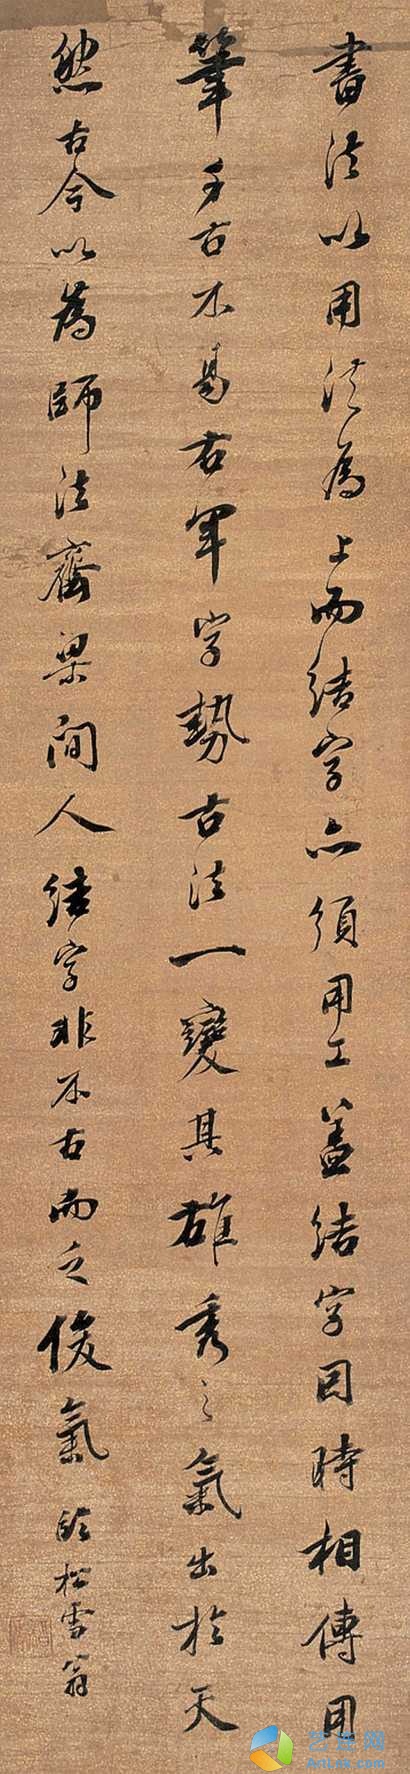 書法以用法為上而結字亦須用工蓋結字因時相傳用
筆千古不易右軍字勢古法一變其雄秀之氣出於天
然古今以為師法齊梁間人結字非不古而乏俊氣 臨松雪翁